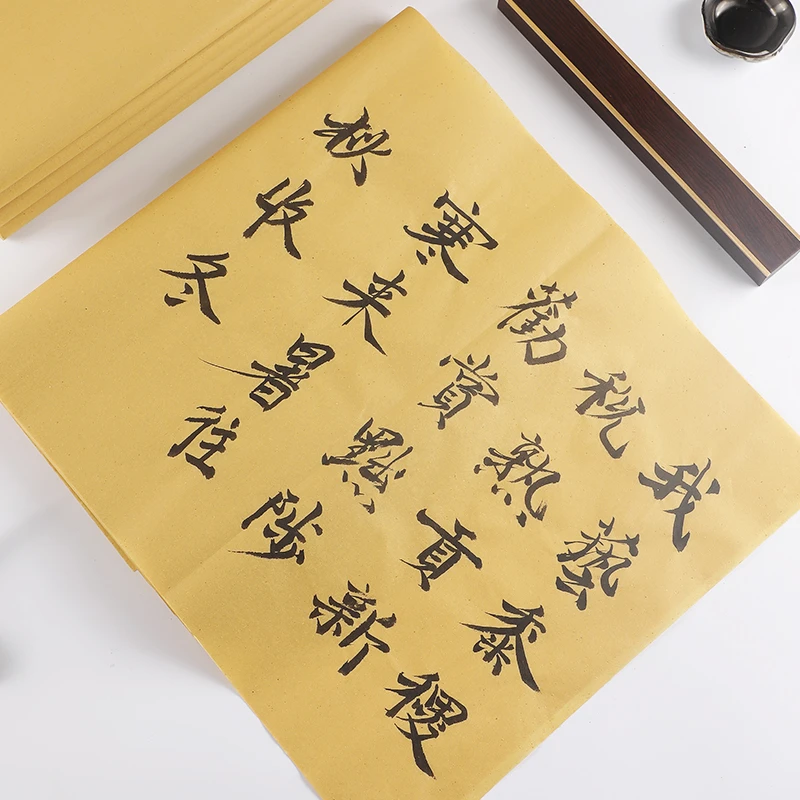 我藝黍稷
税熟貢新
勸賞黜陟
寒来暑往
秋收冬